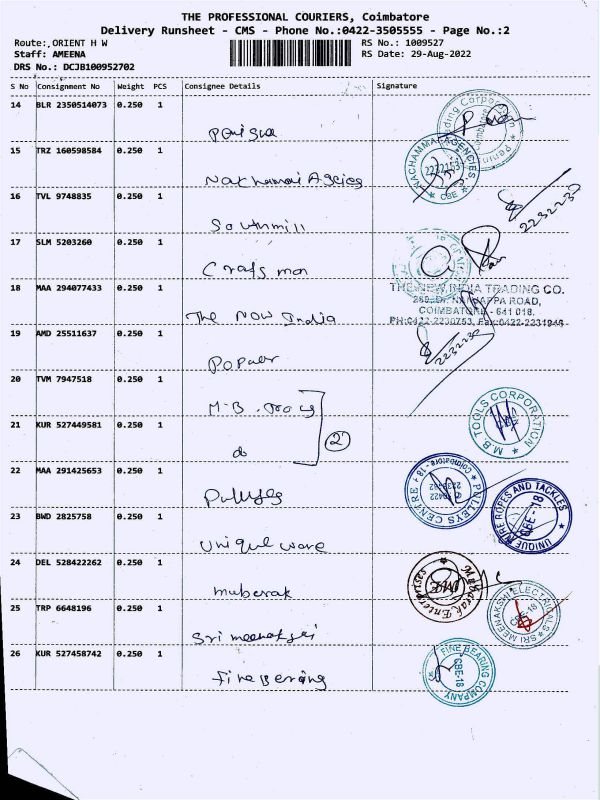 THE PROFESSIONAL COURIERS, Coimbatore
Delivery Runsheet - CMS - Phone No.:0422-3505555 - Page No.:2
Route: ORIENT H W
RS No.: 1009527
Staff: AMEENA
RS Date: 29-Aug-2022
DRS No.: DCJB100952702
S No Consignment No Weight PCS Consignee Details Signature
14 BLR 2350514073 0.250 1
15 TRZ 160598584 0.250 1
NACHAMMAI AGENCIES
CBE
16 TVL 9748835 0.250 1
2232230
Southmill
17 SLM 5203260 0.250 1
Crafsman
18 MAA 294077433 0.250 1
THE NEW INDIA TRADING CO.
COIMBATORE - 641 018.
The Now India
19 AMD 25511637 0.250 1
Popular
20 TVM 7947518 0.250 1
M.B. Tools
M.B. TOOLS CORPORATION
21 KUR 527449581 0.250 1
do
2
22 MAA 291425653 0.250 1
PULLEYS CENTRE
Coimbatore - 18
Pulleys
23 BWD 2825758 0.250 1
UNIQUE WIRE ROPES AND TACKLES
CBE-18
Unique ware
24 DEL 528422262 0.250 1
Mubarak Enterprises
muberak
25 TRP 6648196 0.250 1
SRI MEENAKSHI ELECTRICALS
CBE-18
Sri meenakshi
26 KUR 527458742 0.250 1
FINE BEARING COMPANY
CBE-18
Fine Bering